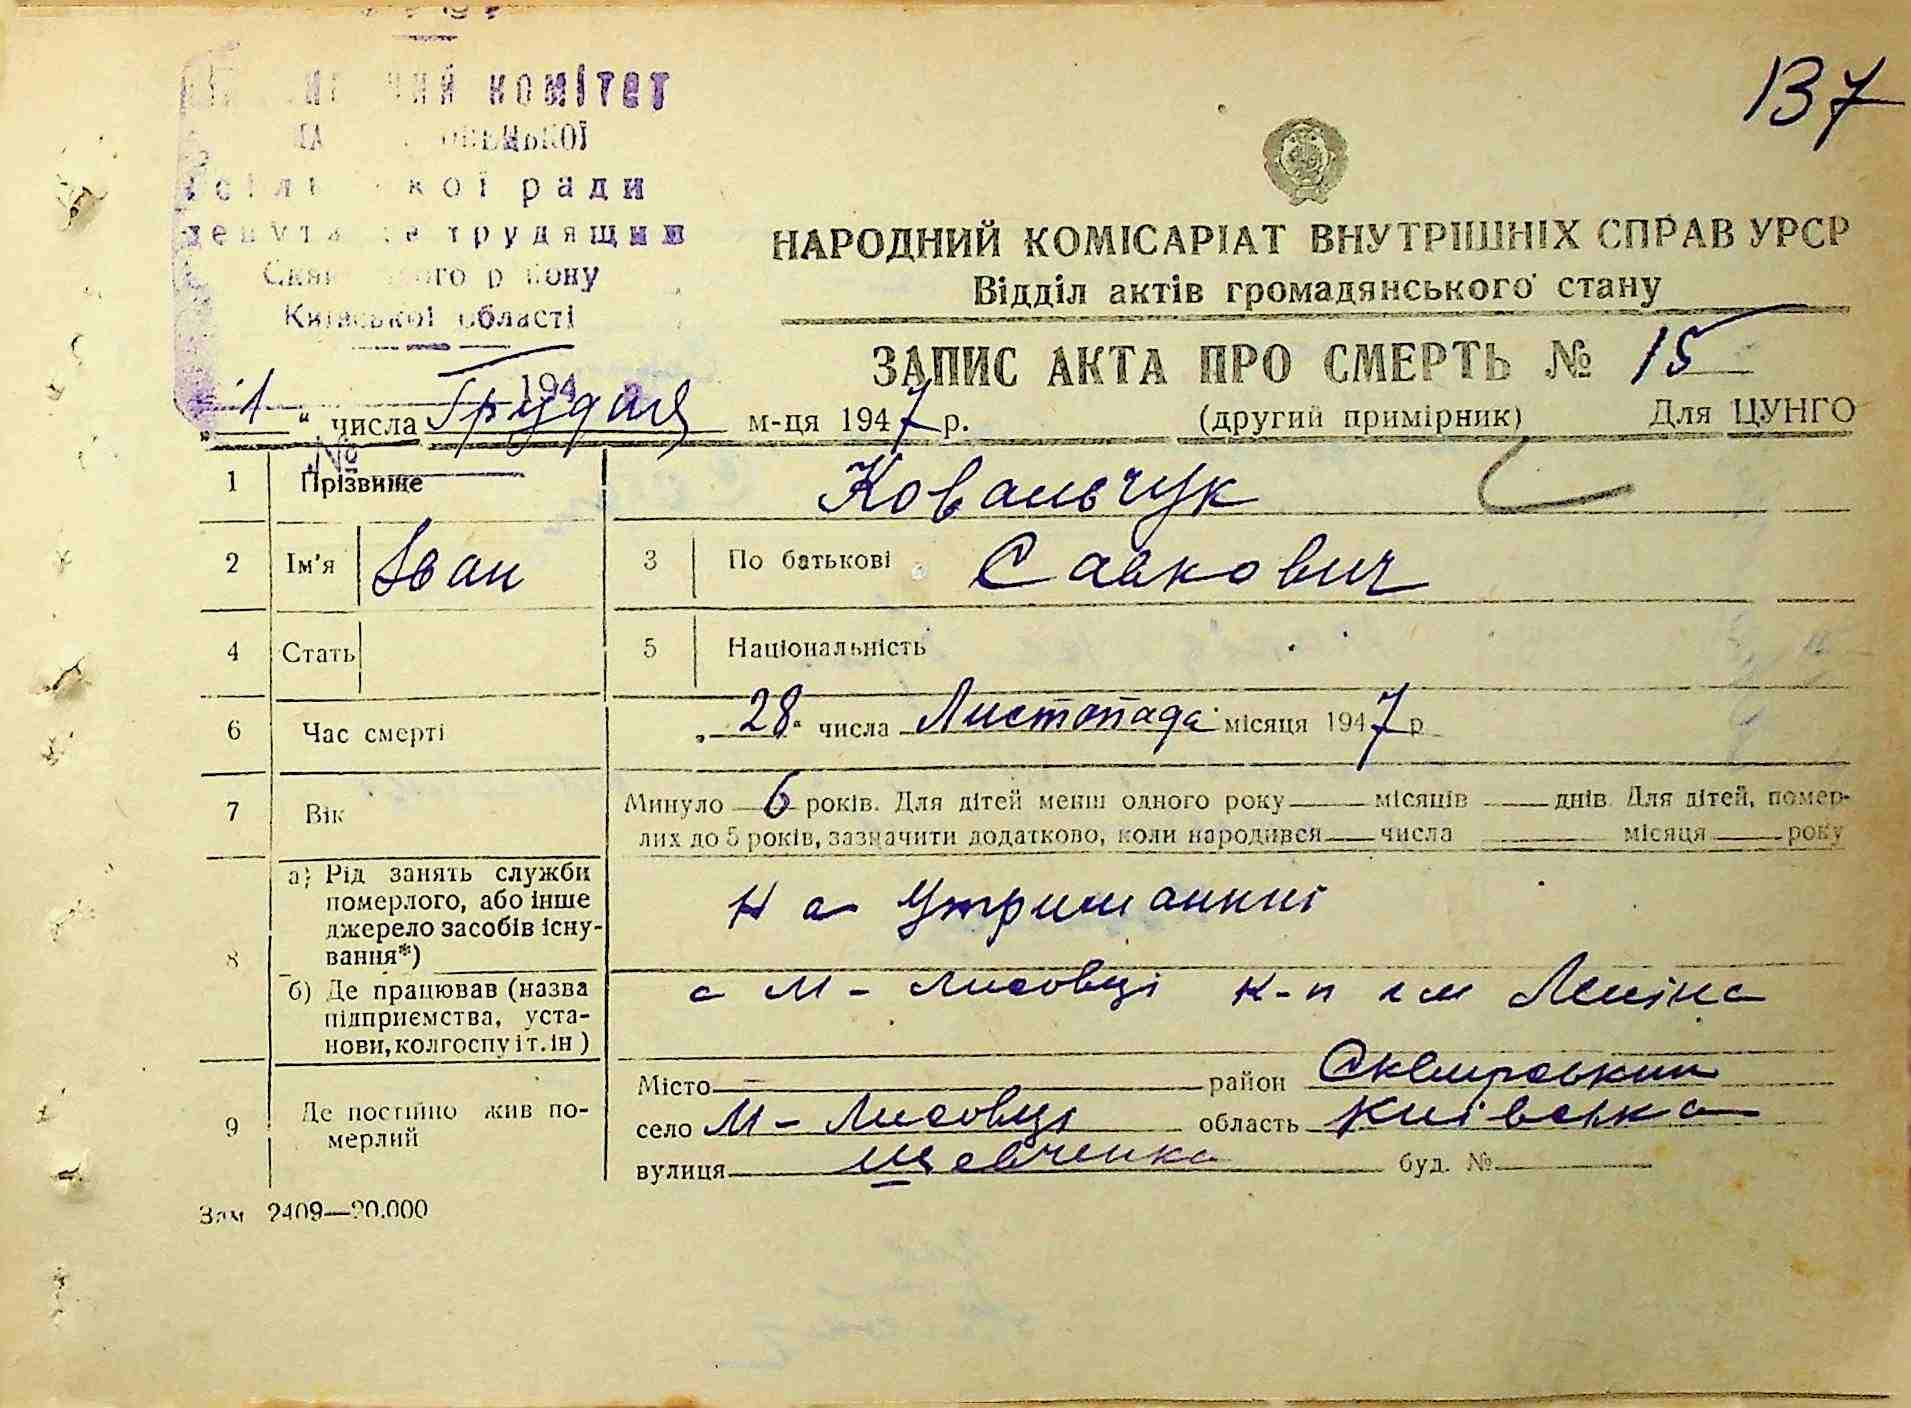 137
комітет
ради
трудящих
Київської області
194
№
НАРОДНИЙ КОМІСАРІАТ ВНУТРІШНІХ СПРАВ УРСР
Відділ актів громадянського стану
ЗАПИС АКТА ПРО СМЕРТЬ № 15
„1“ числа Грудня м-ця 1947 р. (другий примірник) Для ЦУНГО
1 Прізвище Ковальчук
2 Ім'я Іван 3 По батькові Савкович
4 Стать 5 Національність
6 Час смерті „28“ числа Листопада місяця 1947 р
7 Вік Минуло 6 років. Для дітей менш одного року місяців днів. Для дітей, помер-
лих до 5 років, зазначити додатково, коли народився числа місяця року
8 а) Рід занять служби
померлого, або інше
джерело засобів існу-
вання*) На Утриманні
б) Де працював (назва
підприємства, уста-
нови, колгоспу і т. ін) с М-Лисовці к-п ім Леніна
9 Де постійно жив по-
мерлий
Місто — район Сквирський
село М-Лисовці область Київська
вулиця Шевченка буд. №
Зам 2409—20.000